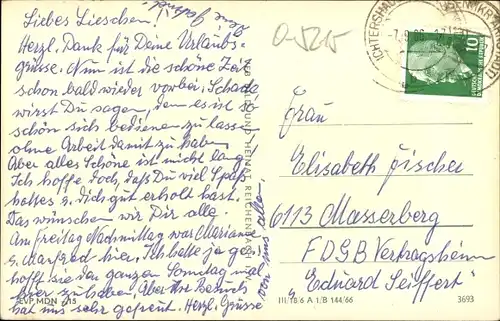 Liebes Lieschen!
Herzl. Dank für Deine Urlaubs-
grüsse. Nun ist die schöne Zeit
schon bald wieder vorbei. Schade
wirst Du sagen, denn es ist so
schön sich bedienen zu lassen
ohne Arbeit damit zu haben
Aber alles Schöne ist nicht lang.
Ich hoffe doch, daß Du viel Spaß
hattest u. dich gut erholt hast.
Das wünschen wir Dir alle.
Am Freitag Nachmittag war Marianne
u. Manfred hier. Ich hatte ja ge-
hofft sie den ganzen Sonntag mal
hier zu haben. Aber Ihr Besuch
hat uns sehr gefreut. Herzl. Grüsse
von uns allen.
Deine
EVP MDN 15
UND HEIMAT REICHENBACH
III/18/6 A 1/B 144/66
3693
O-5215
ICHTERSHAUSEN
10
Frau
Elisabeth Fischer
6113 Masserberg
FDGB Vertragsheim
"Eduard Seiffert"